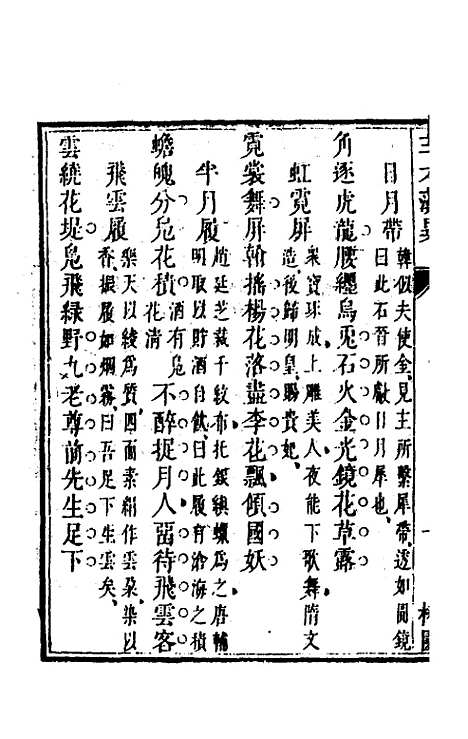 日月帶
韓侂夫使全見主所繫犀帶透如圓鏡
曰此石晉所獻日月犀也
角逐虎龍腰纒烏兎石火金光鏡花草露
虹霓屏
衆寶球成上雕美人夜能下歌舞隋文
造後歸明皇賜貴妃
霓裳舞屏幹搖楊花落盡李花飄傾國妖
半月履
趙廷芝裁千紋布托銀線蠟爲之唐輔
明取以貯酒自飲曰此履有滄海之積
蟾魄分凫花積
酒有凫
花清
不醉捉月人畱待飛雲客
飛雲履
樂天以綾爲質四面素絹作雲朶染以
香振履如烟霧曰吾足下生雲矣
雲繞花堤凫飛緑野九老尊前先生足下